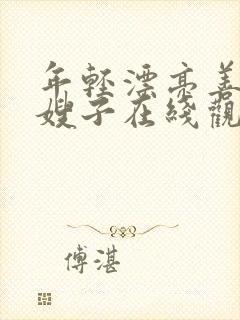 年轻漂亮善
嫂子在线觀
傅湛